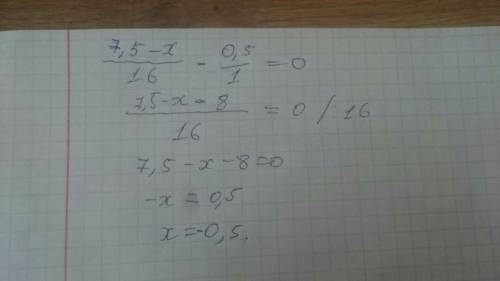 (7,5-x)/16 - 0,5/1 = 0
(7,5-x-8)/16 = 0 / 16
7,5-x-8=0
-x = 0,5
x=-0,5.